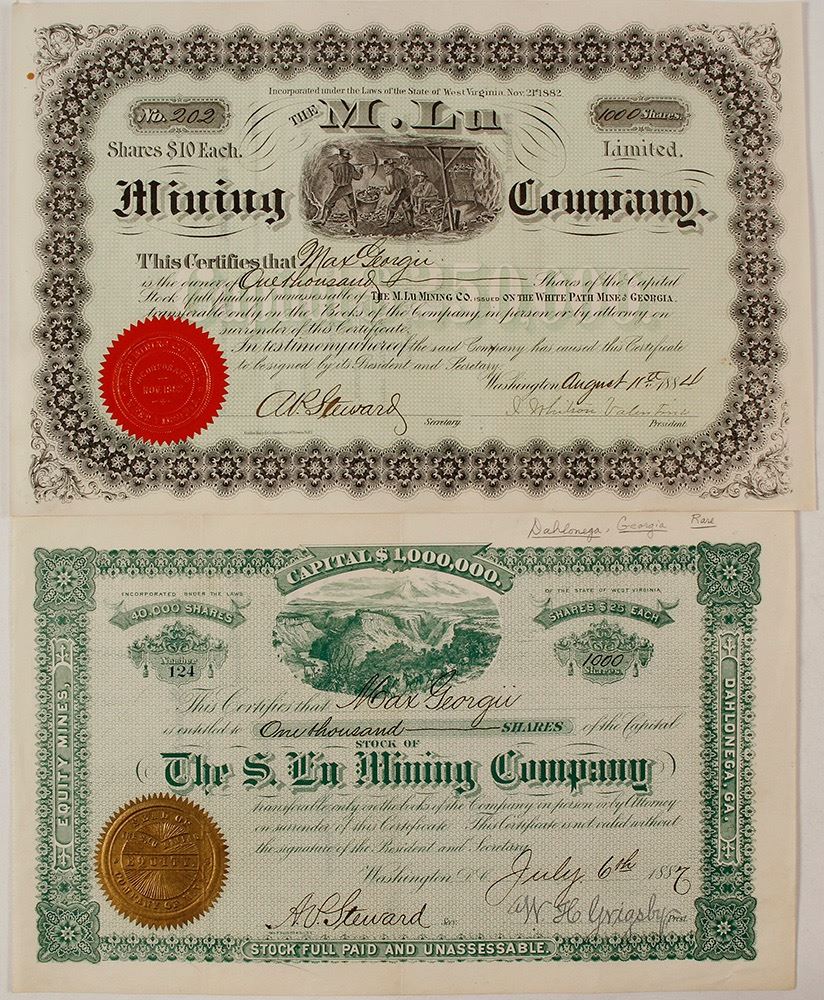 Incorporated under the Laws of the State of West Virginia, Nov. 21st 1882.
No. 202
THE M. Lu
1000 Shares
Shares $10 Each.
Limited.
Mining Company.
This Certifies that Max Georgii
is the owner of One thousand Shares of the Capital
Stock full paid and unassessable of THE M. LU MINING CO. ISSUED ON THE WHITE PATH MINE, GEORGIA.
transferable only on the Books of the Company in person or by attorney on
surrender of this Certificate.
In testimony whereof the said Company has caused this Certificate
to be signed by its President and Secretary.
Washington August 11th 1884
A.P. Steward
Secretary.
President.
INCORPORATED
Dahlonega, Georgia Rare
CAPITAL $1,000,000.
INCORPORATED UNDER THE LAWS
OF THE STATE OF WEST VIRGINIA
40,000 SHARES
SHARES $25 EACH
Number
124
1000
SHARES
This Certifies that Max Georgii
is entitled to One thousand SHARES of the Capital
STOCK OF
The S. Lu Mining Company
transferable only on the books of the Company in person or by Attorney
on surrender of this Certificate. This Certificate is not valid without
the signature of the President and Secretary.
Washington, D.C. July 6th 1887
A.P. Steward Sec.
W H Grigsby Prest
EQUITY MINES,
DAHLONEGA, GA.
SEAL OF
EQUITY
STOCK FULL PAID AND UNASSESSABLE.